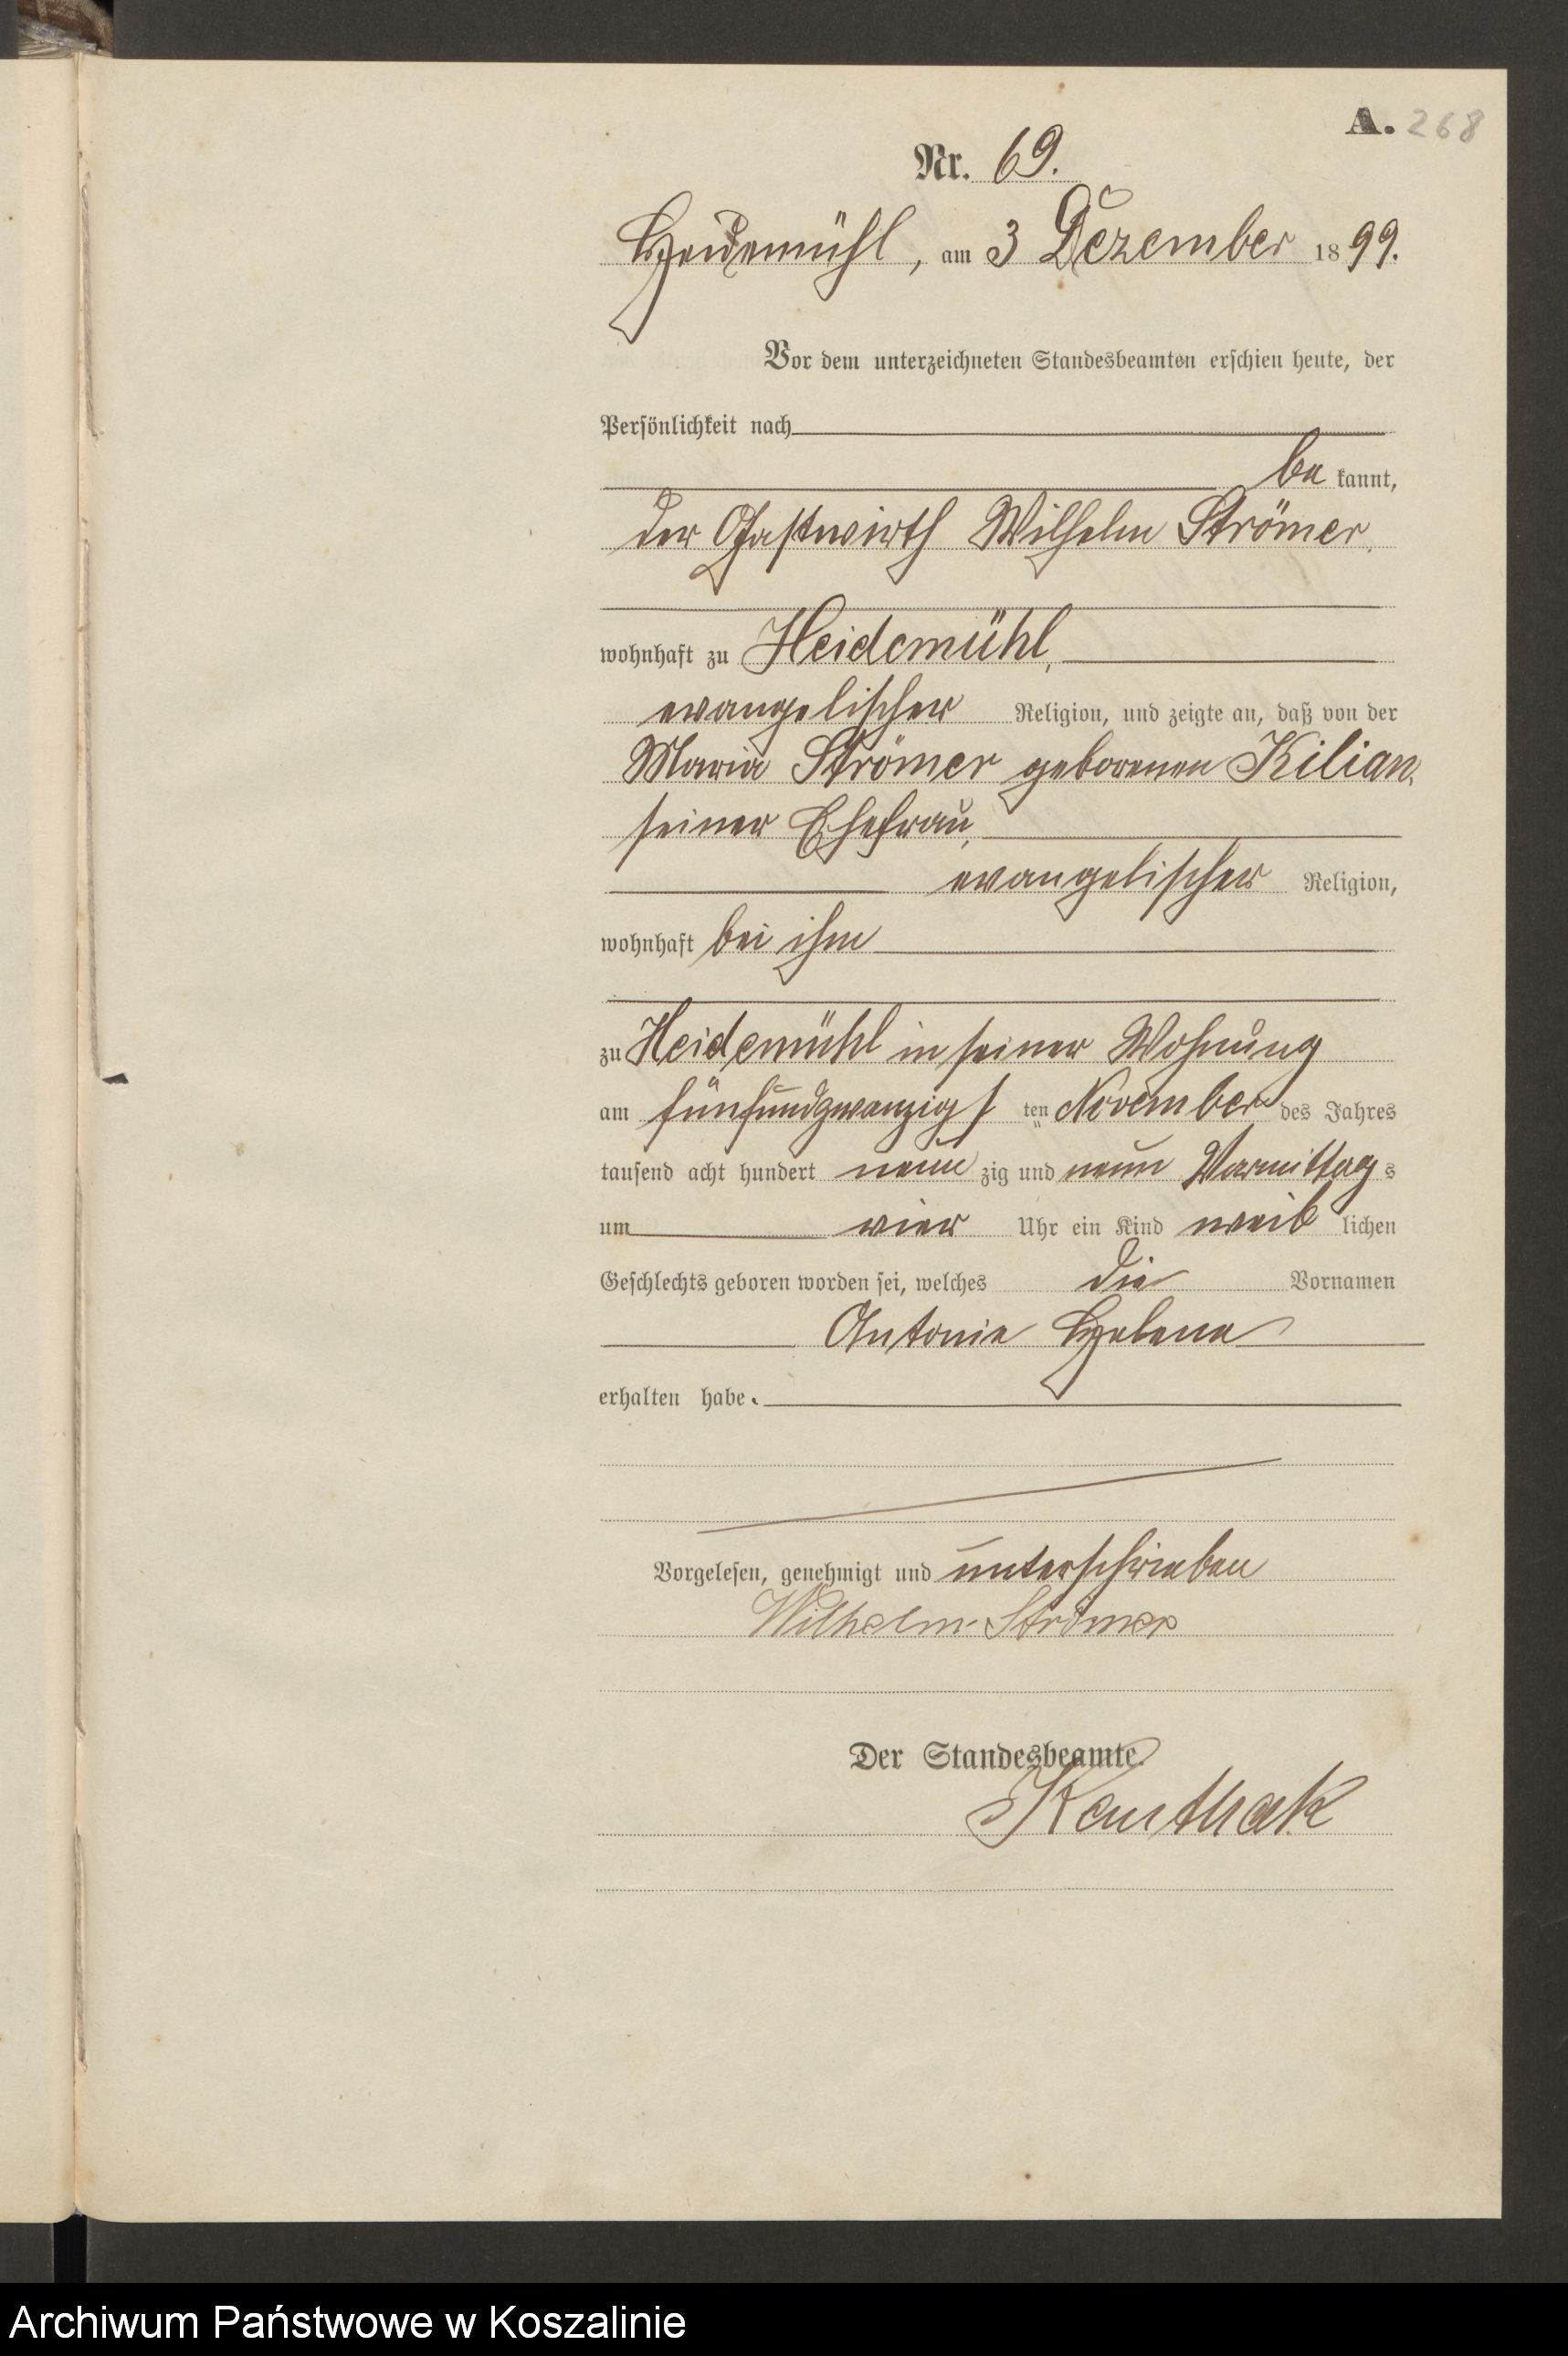 A. 268
Nr. 69.
Heidemühl, am 3 Dezember 1899.
Vor dem unterzeichneten Standesbeamten erschien heute, der
Persönlichkeit nach
bekannt,
der Gastwirth Wilhelm Strömer,
wohnhaft zu Heidemühl,
evangelischer Religion, und zeigte an, daß von der
Maria Strömer geborenen Kilian,
seiner Ehefrau,
evangelischer Religion,
wohnhaft bei ihm
zu Heidemühl in seiner Wohnung
am fünfundzwanzigsten November des Jahres
tausend acht hundert neunzig und neun Vormittags
um vier Uhr ein Kind weiblichen
Geschlechts geboren worden sei, welches die Vornamen
Antonie Helene
erhalten habe.
Vorgelesen, genehmigt und unterschrieben
Wilhelm Strömer
Der Standesbeamte.
Kauthak
Archiwum Państwowe w Koszalinie